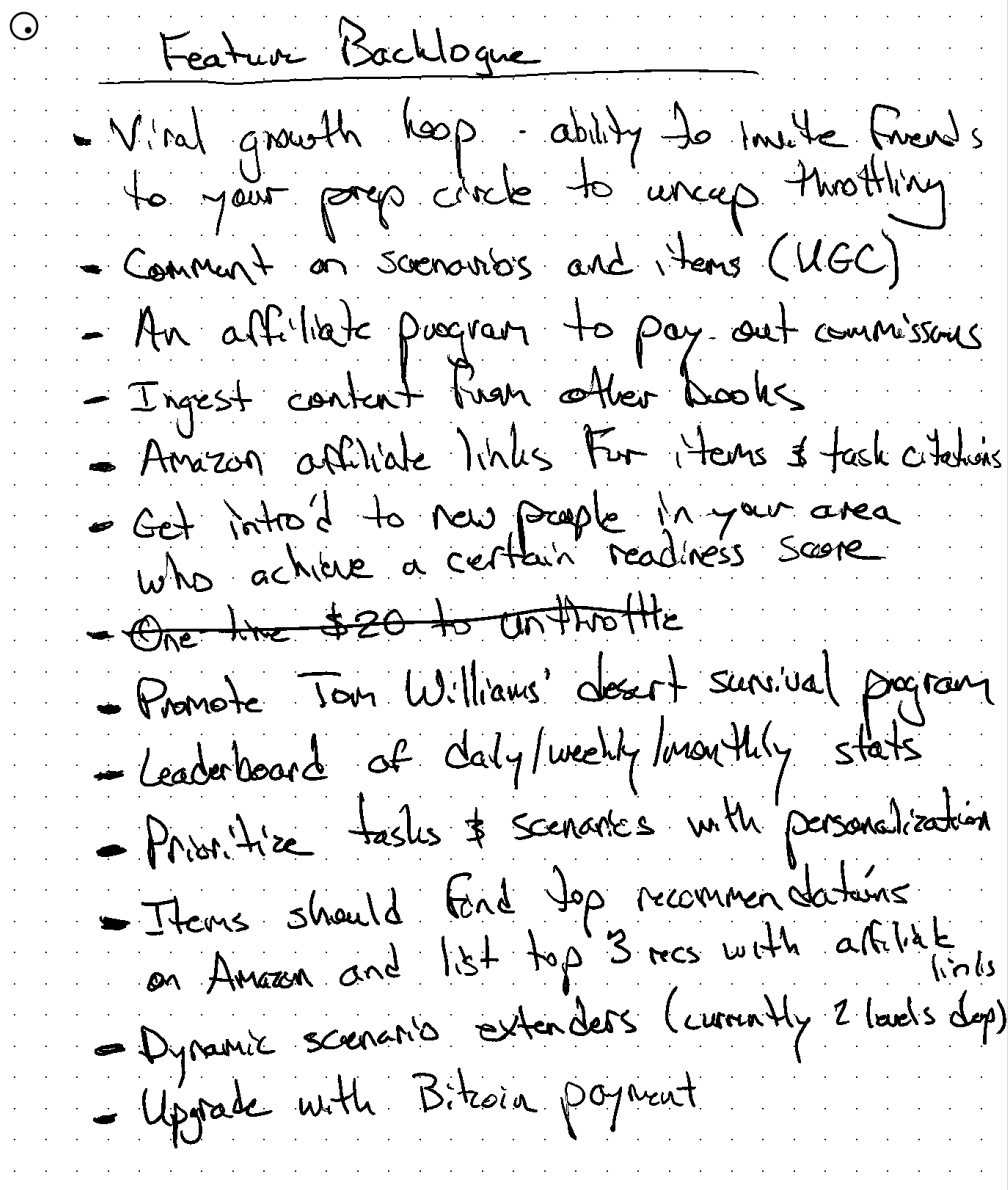 Feature Backlogue
- Viral growth loop - ability to invite friends
to your prep circle to uncap throttling
- Comment on scenarios and items (UGC)
- An affiliate program to pay out commissions
- Ingest content from other books
- Amazon affiliate links for items & task citations
- Get intro'd to new people in your area
who achieve a certain readiness score
- One time $20 to unthrottle
- Promote Tom Williams' desert survival program
- Leaderboard of daily/weekly/monthly stats
- Prioritize tasks & scenarios with personalization
- Items should find top recommendations
on Amazon and list top 3 recs with affiliate
links
- Dynamic scenario extenders (currently 2 levels deep)
- Upgrade with Bitcoin payment